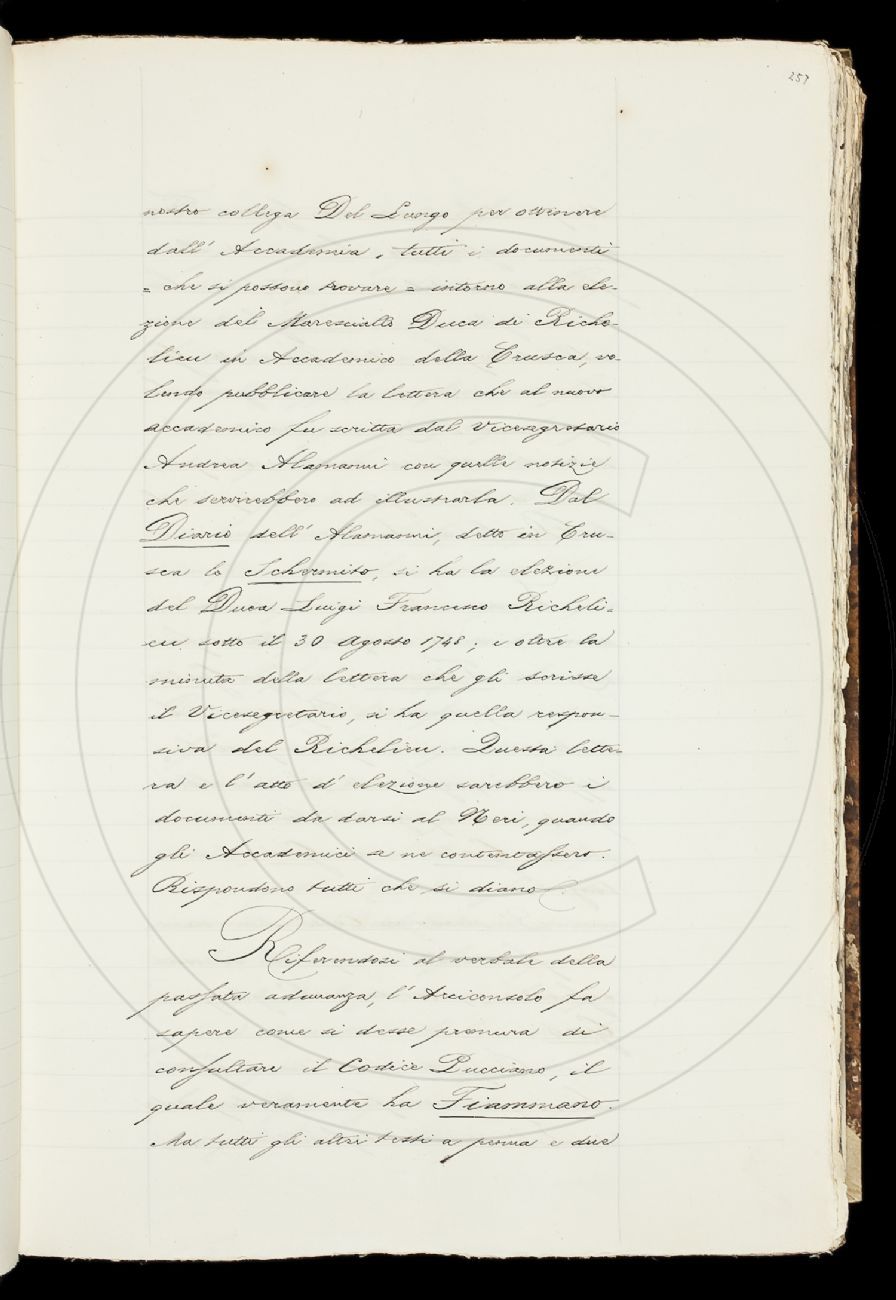 257
nostro collega Del Lungo per ottenere
dall' Accademia, tutti i documenti
= che si possono trovare = intorno alla ele-
zione del Maresciallo Duca di Riche-
lieu in Accademico della Crusca, vo-
lendo pubblicare la lettera che al nuovo
accademico fu scritta dal Vicesegretario
Andrea Alamanni con quelle notizie
che servirebbero ad illustrarla. Dal
Diario dell' Alamanni, detto in Cru-
sca lo Schermito, si ha la elezione
del Duca Luigi Francesco Richeli-
eu sotto il 30 Agosto 1748; e oltre la
minuta della lettera che gli scrisse
il Vicesegretario, si ha quella respon-
siva del Richelieu. Questa lette-
ra e l' atto d' elezione sarebbero i
documenti da darsi al Neri, quando
gli Accademici se ne contentassero.
Rispondono tutti che si diano
Riferendosi al verbale della
passata adunanza, l' Arciconsolo fa
sapere come si desse premura di
consultare il Codice Pucciano, il
quale veramente ha Fiammano.
Ma tutti gli altri testi a penna e due